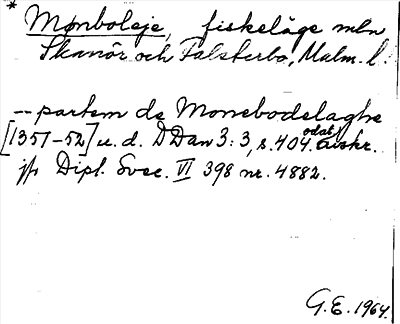 * Mønboleje, fiskeläge mln
Skanör och Falsterbo, Malm. l.
-- partem de Monebodelaghe
[1351-52] u. d. DDan 3:3, s. 404. odat. avskr.
jfr Dipl. Svec. VI 398 nr. 4882.
G.E. 1964.